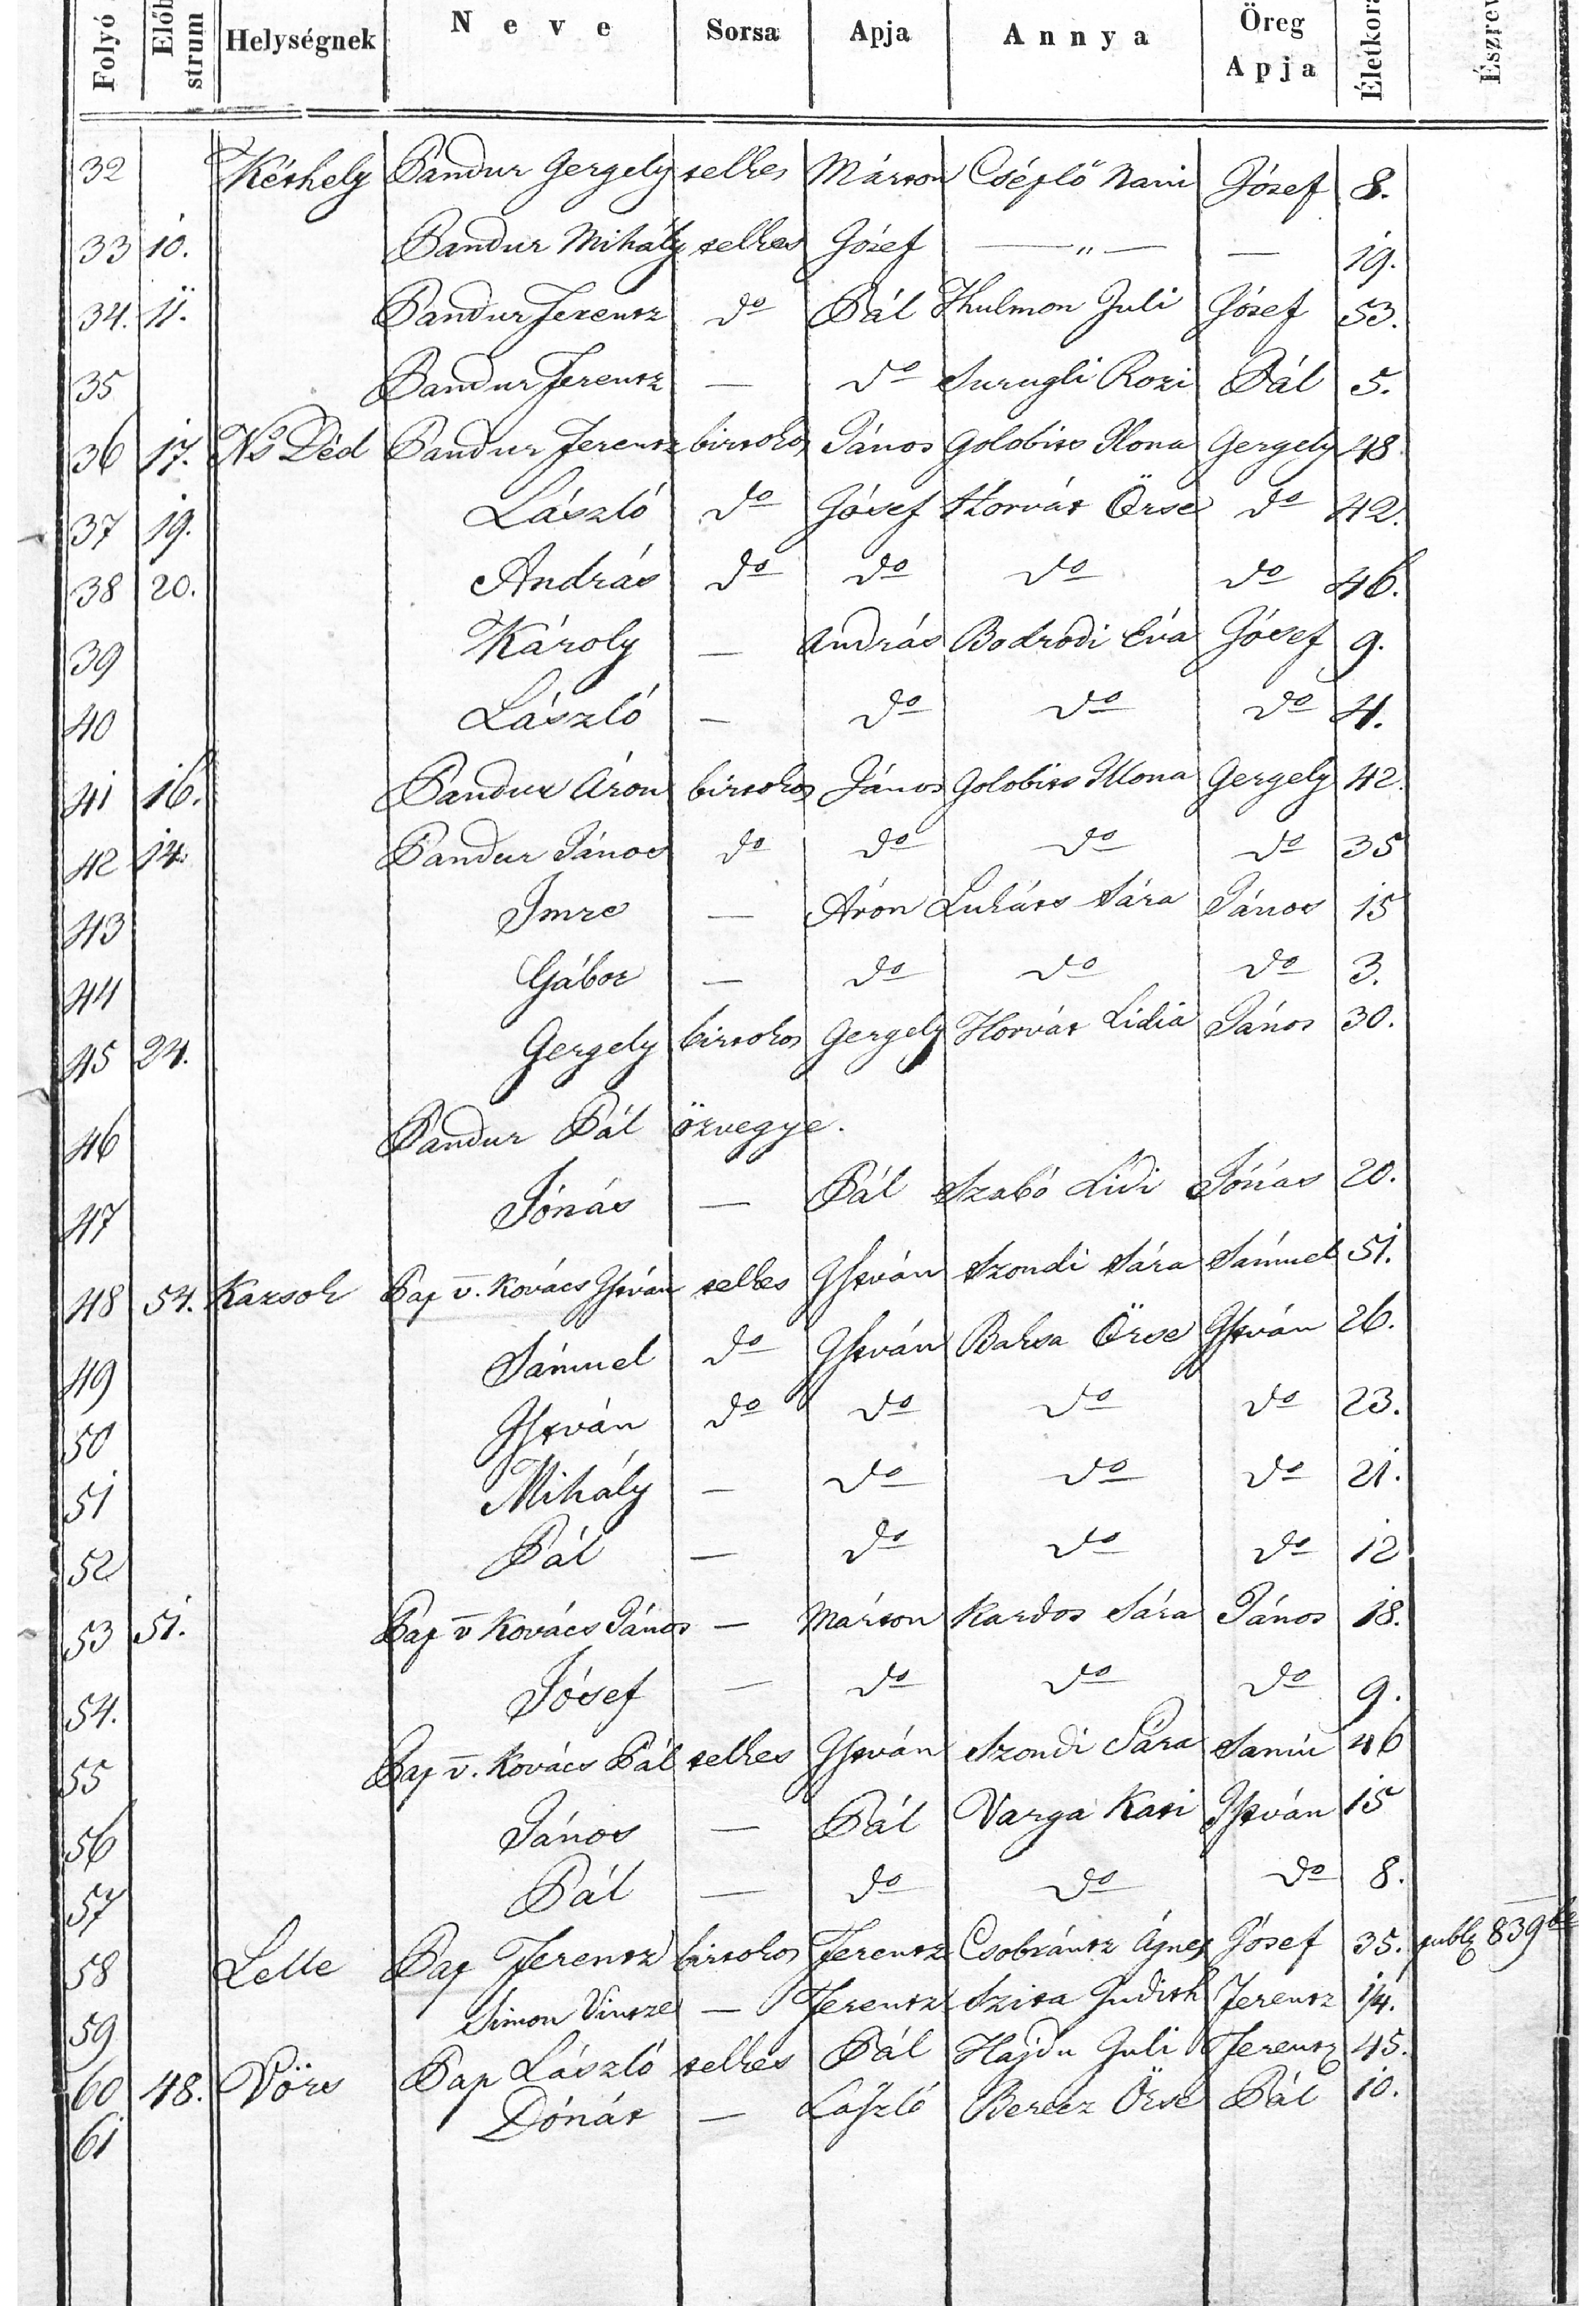 Folyó Előb strum Helységnek Neve Sorsa Apja Annya Öreg Apja Életkora Észrev
32 Kéthely Pandur Gergely telkes Márton Cséplő Nani Jósef 8.
33 10. Pandur Mihály telkes Jósef — „ — — 19.
34. 11. Pandur Ferentz do Pál Thulmon Juli Jósef 53.
35 Pandur Ferentz — do Surugli Rozi Pál 5.
36 17. Ns Déd Pandur Ferentz birtokos János Golobits Ilona Gergely 48
37 19. László do Jósef Horvát Örse do 42.
38 20. András do do do do 46.
39 Károly — András Bodrodi Éva Jósef 9.
40 László — do do do 4.
41 16. Pandur Áron birtokos János Golobits Illona Gergely 42.
42 14. Pandur János do do do do 35
43 Imre — Áron Lukáts Sára János 15
44 Gábor — do do do 3.
45 24. Gergely birtokos Gergely Horvát Lidia János 30.
46 Pandur Pál özvegye.
47 Jónás — Pál Szabó Lidi Jónás 20.
48 54. Karsok Pap v. Kovács István telkes István Szondi Sára Sámuel 51.
49 Sámuel do István Baksa Örse István 26.
50 István do do do do 23.
51 Mihály — do do do 21.
52 Pál — do do do 12
53 51. Pap v Kovács János — Márton Kardos Sára János 18.
54. Jósef — do do do 9.
55 Pap v. Kovács Pál telkes István Szondi Sára Samu 46
56 János — Pál Varga Kati István 15
57 Pál — do do do 8.
58 Lelle Pap Ferentz birtokos Ferentz Csobrántz Ágnes Jósef 35. publ 839be
59 Simon Vintze — Ferentz Szita Judith Ferentz 14.
60 48. Vörs Pap László telkes Pál Hajdu Juli Ferentz 45.
61 Dónát — László Berecz Örse Pál 10.